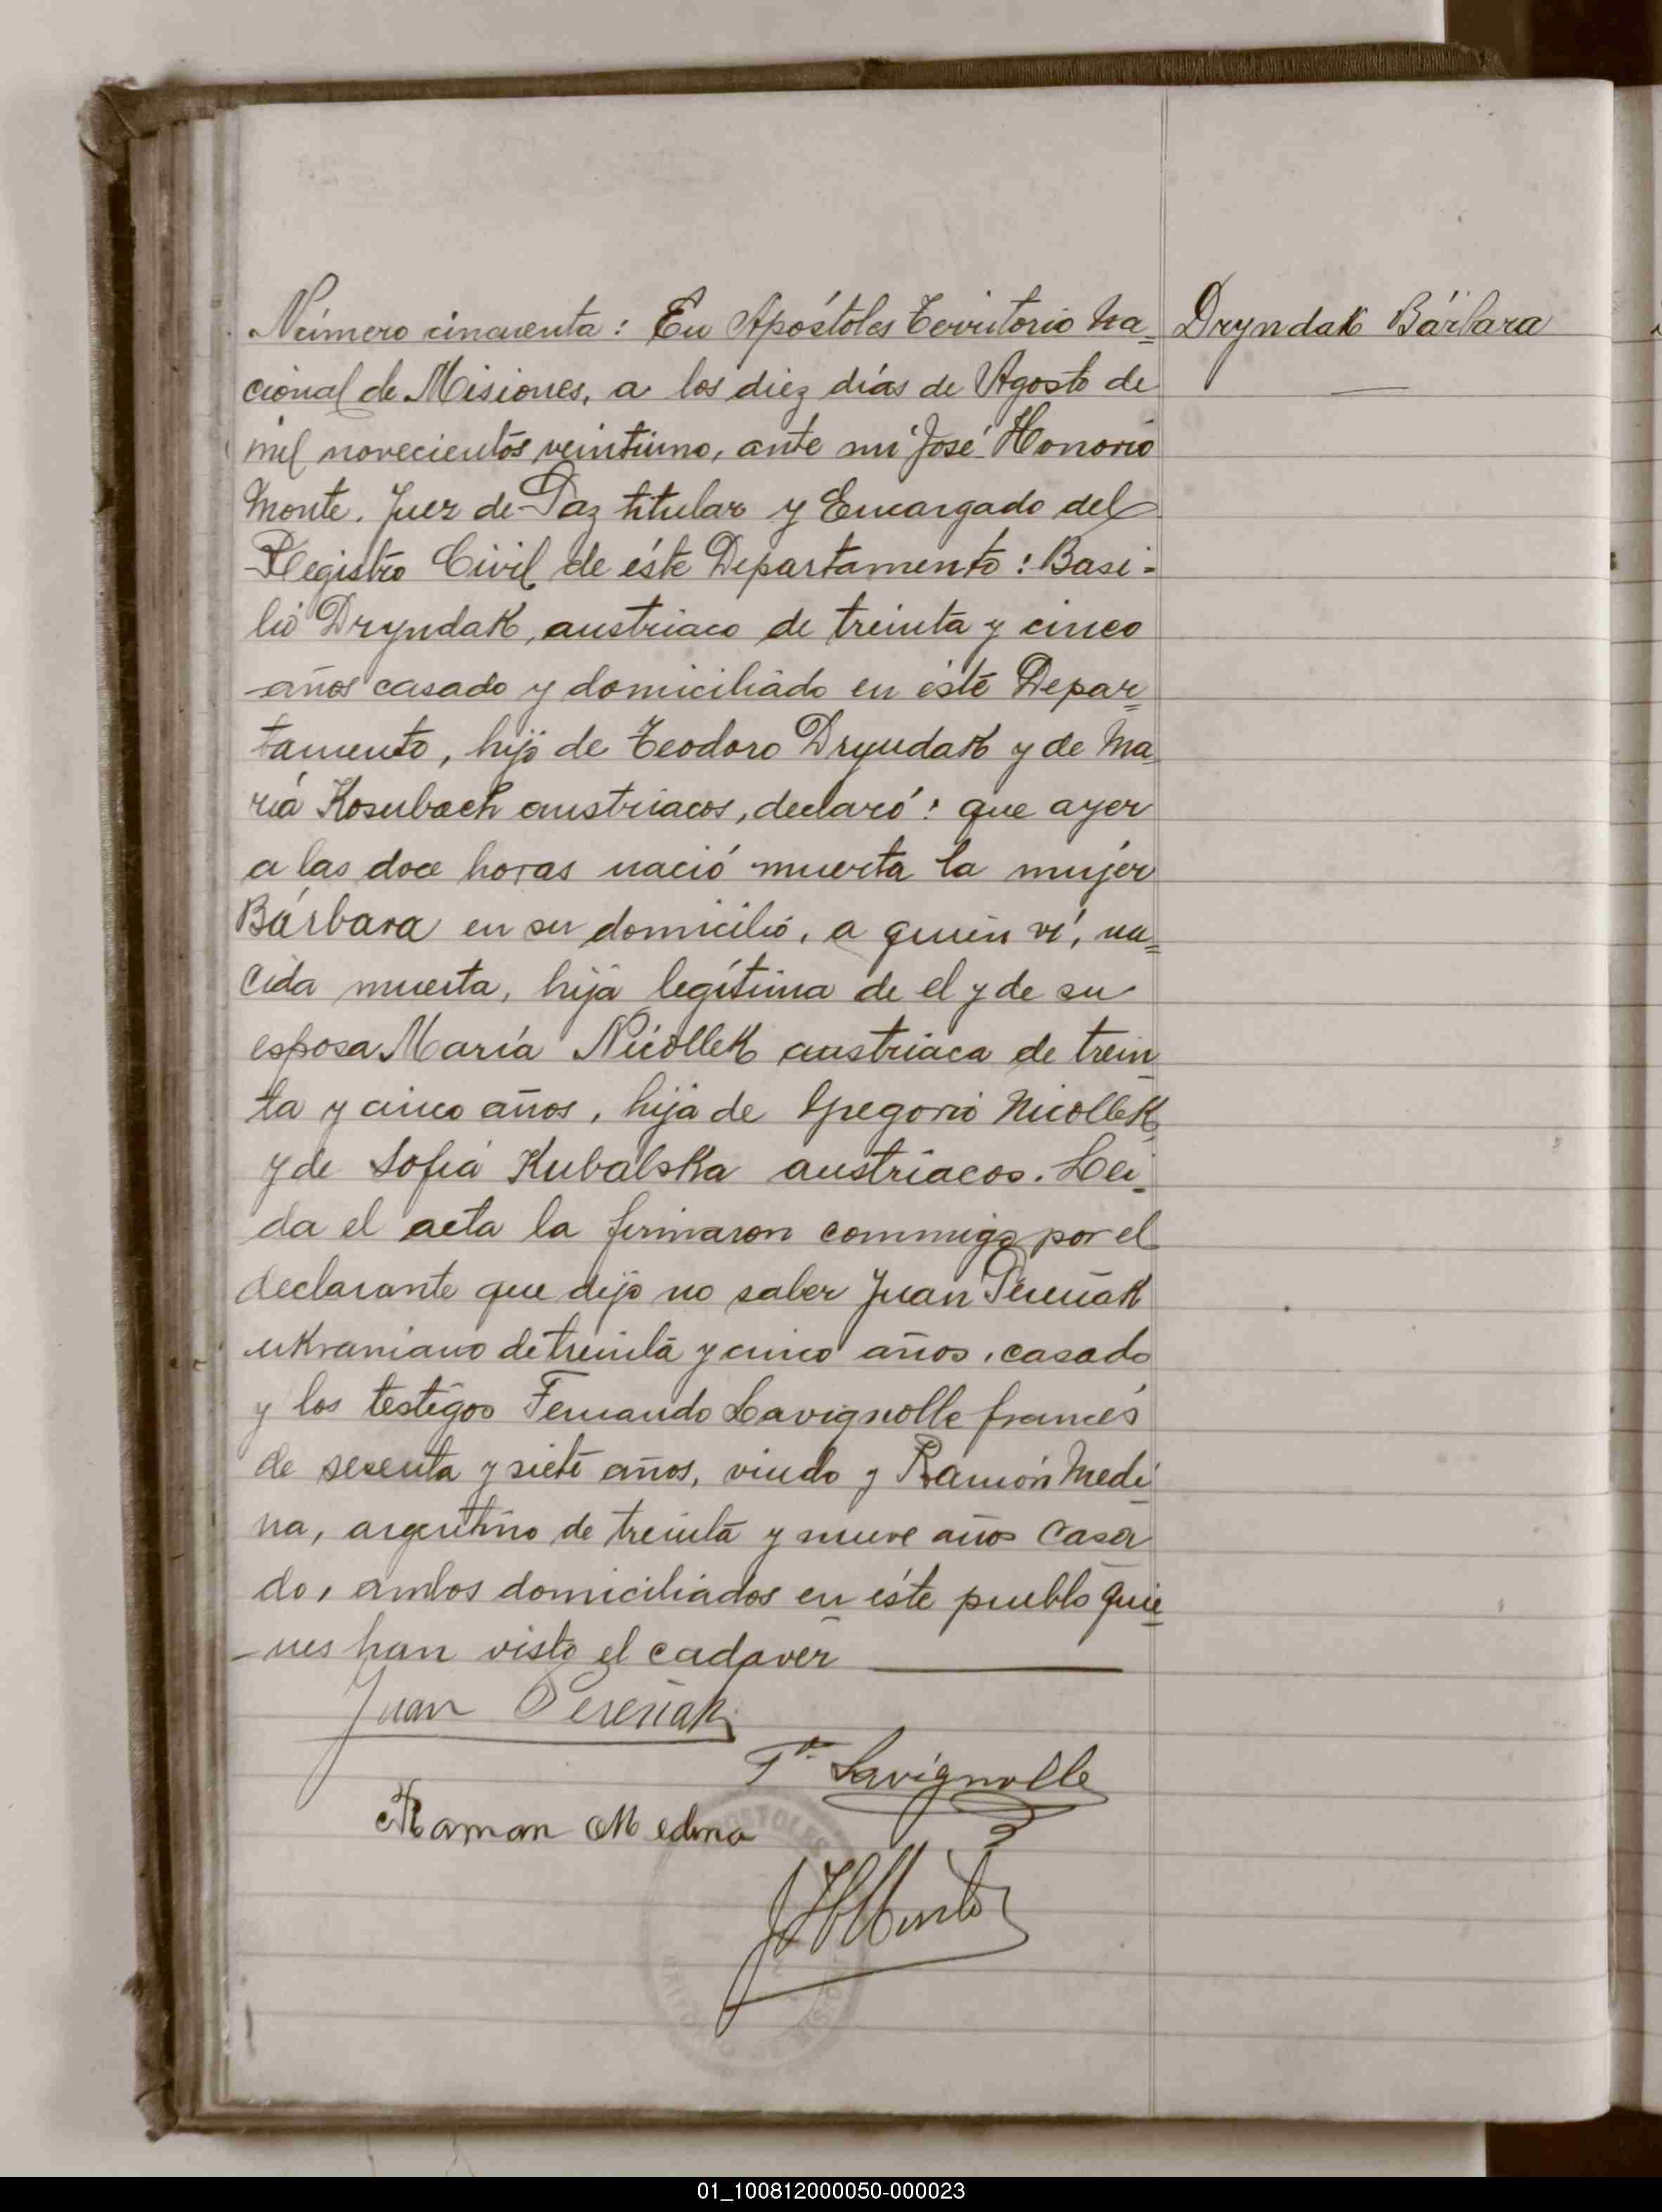 Número cincuenta: En Apóstoles Territorio Na= Dryndak Bárbara
cional de Misiones, a los diez días de Agosto de
mil novecientos veintiuno, ante mi José Honorio
Monte. Juez de Paz titular y Encargado del
Registro Civil de éste Departamento: Basi-
lio Dryndak, austriaco de treinta y cinco
años casado y domiciliado en éste Depar=
tamento, hijo de Teodoro Dryndak y de Ma
ría Kosubach austriacos, declaró: que ayer
a las doce horas nació muerta la mujer
Bárbara en su domicilio, a quien ví, na=
cida muerta, hija legítima de el y de su
esposa María Nicollek austriaca de trein
ta y cinco años, hija de Gregorio Nicollek
y de Sofía Kubalska austríacos. Lei-
da el acta la firmaron conmmigo por el
declarante que dijo no saber Juan Pereñak
ukraniano de treinta y cinco años, casado
y los testigos Fernando Lavignolle francés
de sesenta y siete años, viudo y Ramón Medi
na, argentino de treinta y nueve años casa
do, ambos domiciliados en éste pueblo quie
nes han visto el cadaver
Juan Pereñak
F. Lavignolle
Raman Medina
JHMonte
APOSTOLES
01_100812000050-000023